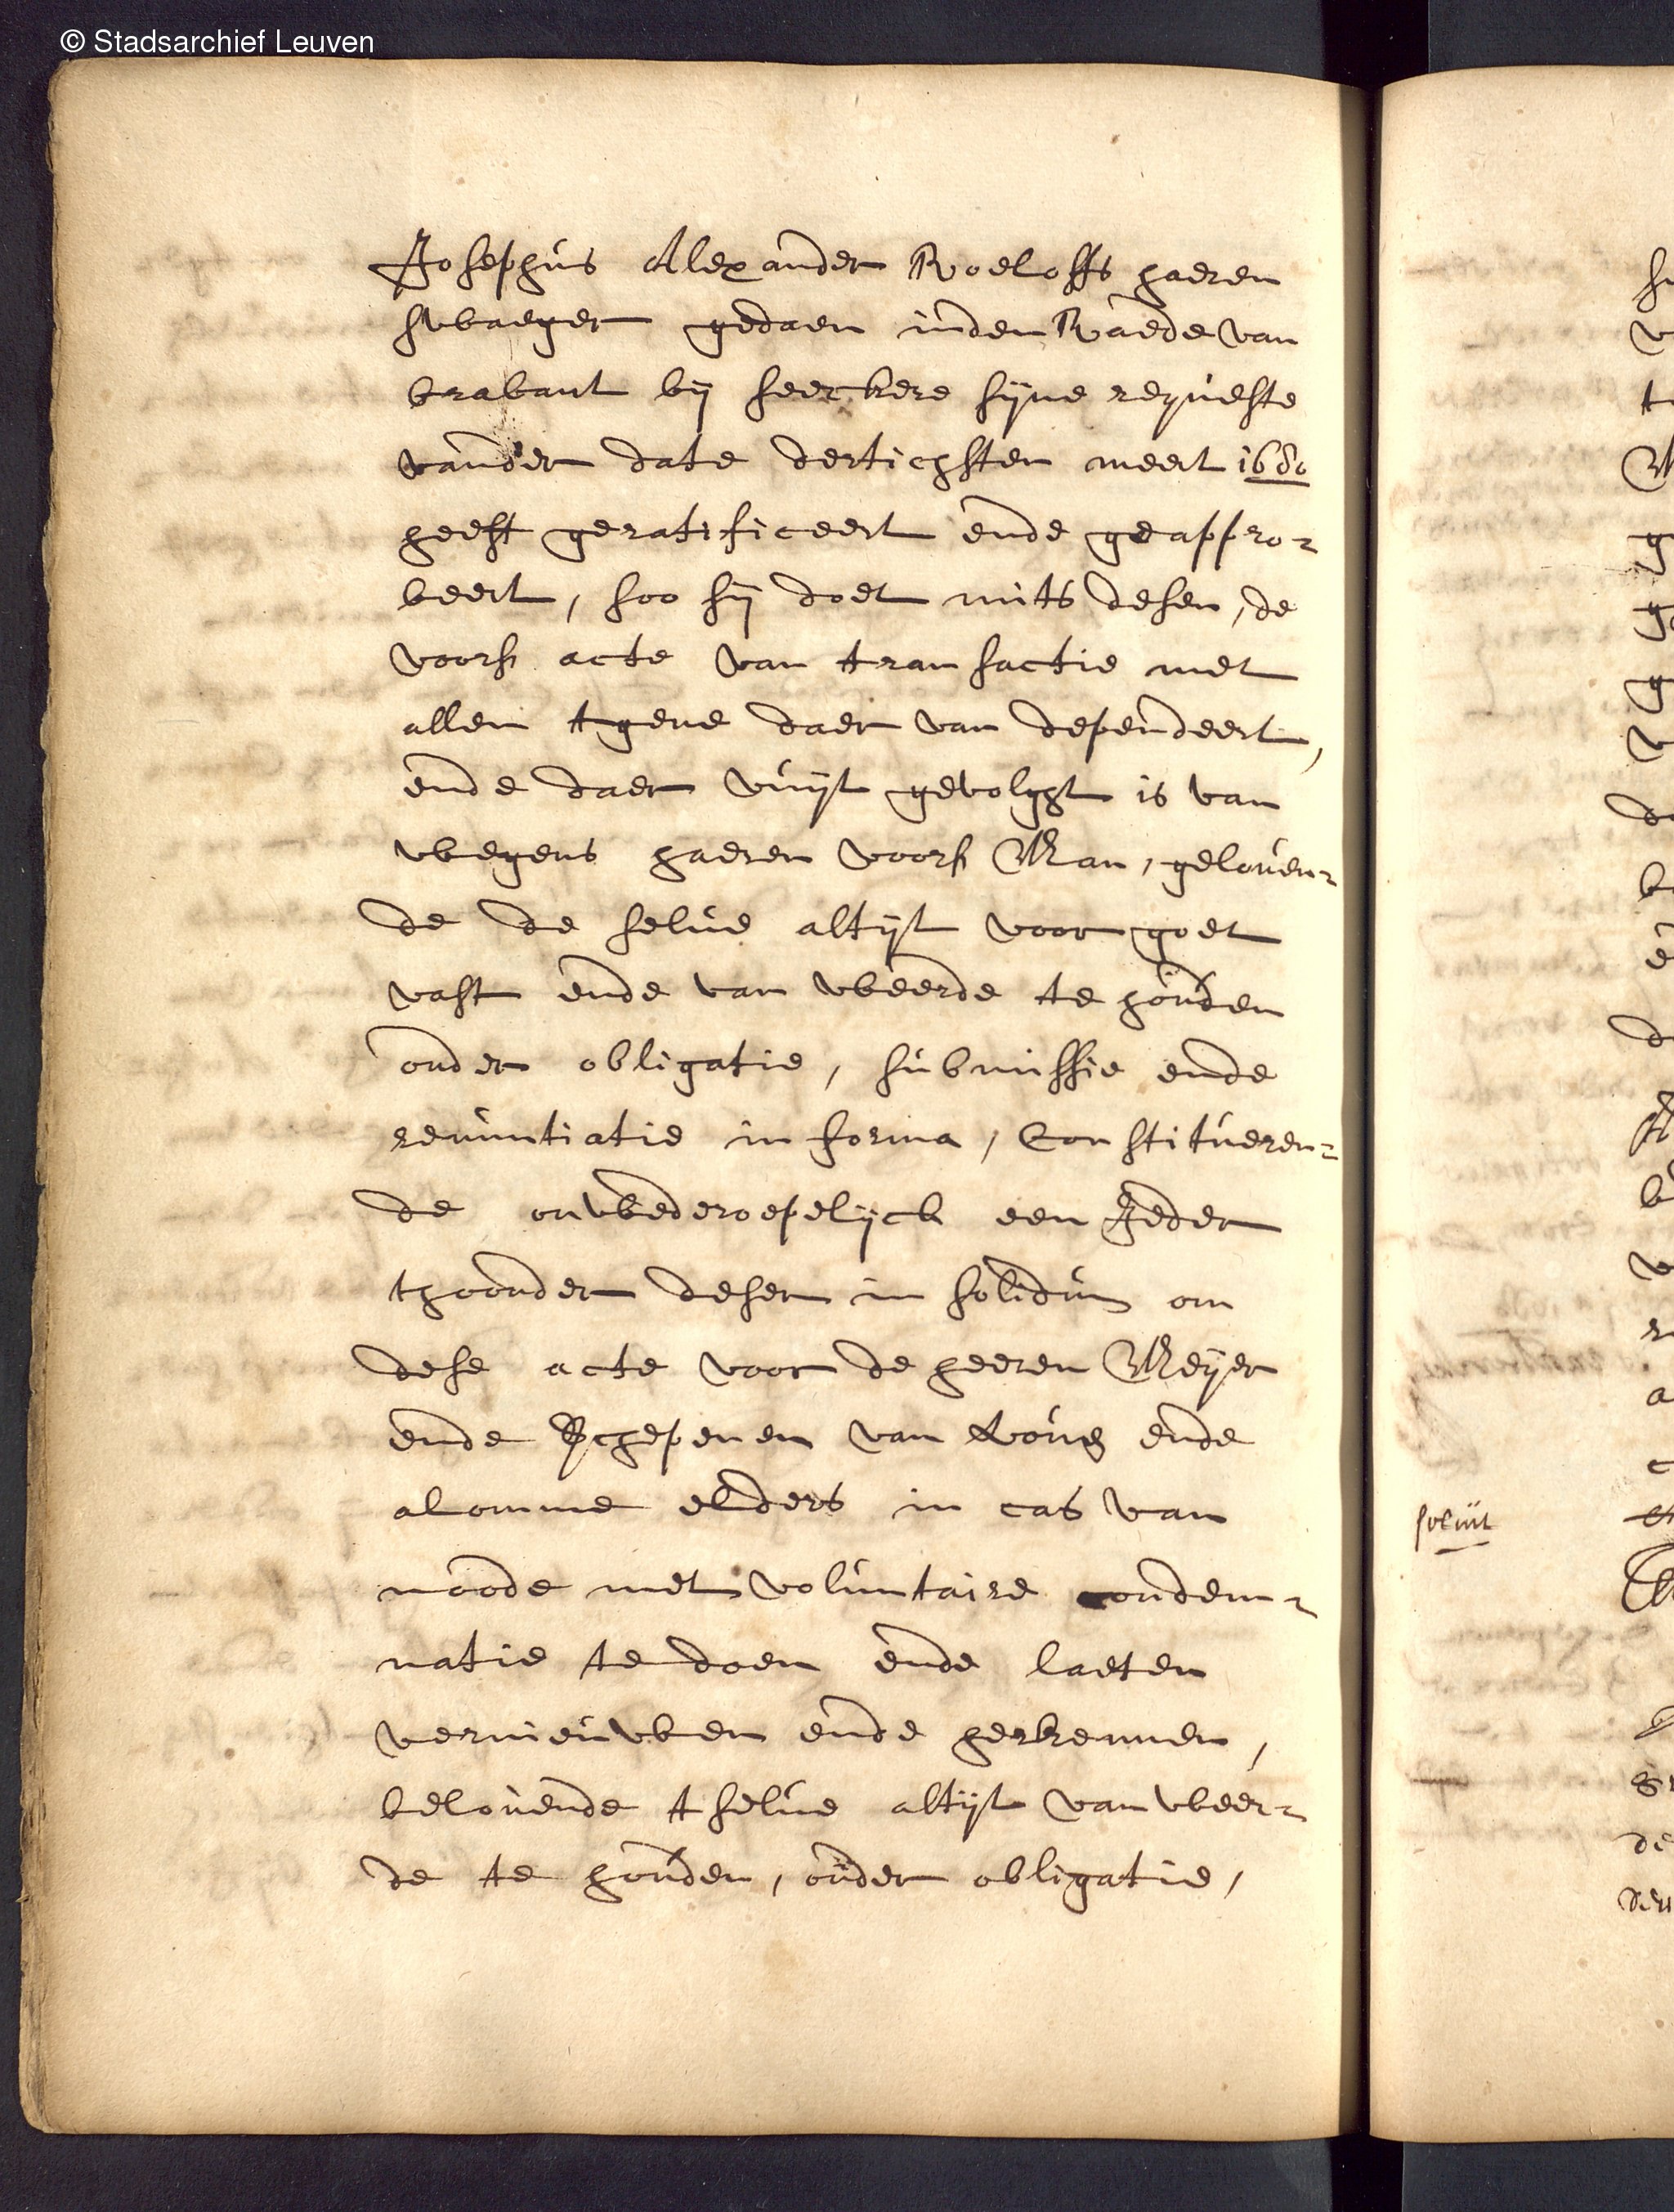 © Stadsarchief Leuven
Josephus Alexander Roeloffs haeren
swaeger gedaen inden Raede van
brabant bij seeckere sijne requeste
vander date dertichsten meert 1680
heeft geratificeert ende geappro-
beert, soo sij doet mits desen, de
voors acte van transactie met
allen tgene daer van dependeert,
ende daer vuijt gevolght is van
wegens haeren voors Man, geloven-
de de selve altijt voor goet
vast ende van weerde te houden
onder obligatie, submissie ende
renuntiatie in forma, Constitueren-
de onwederoepelijck een Jeder
thoonder deser in solidum om
dese acte voor de heeren Meijer
ende Schepenen van Loven ende
alomme elders in cas van
noode met voluntaire condem-
natie te doen ende laeten
vernieuwen ende herkennen,
belovende tselve altijt van weer-
de te houden, onder obligatie,
solvit